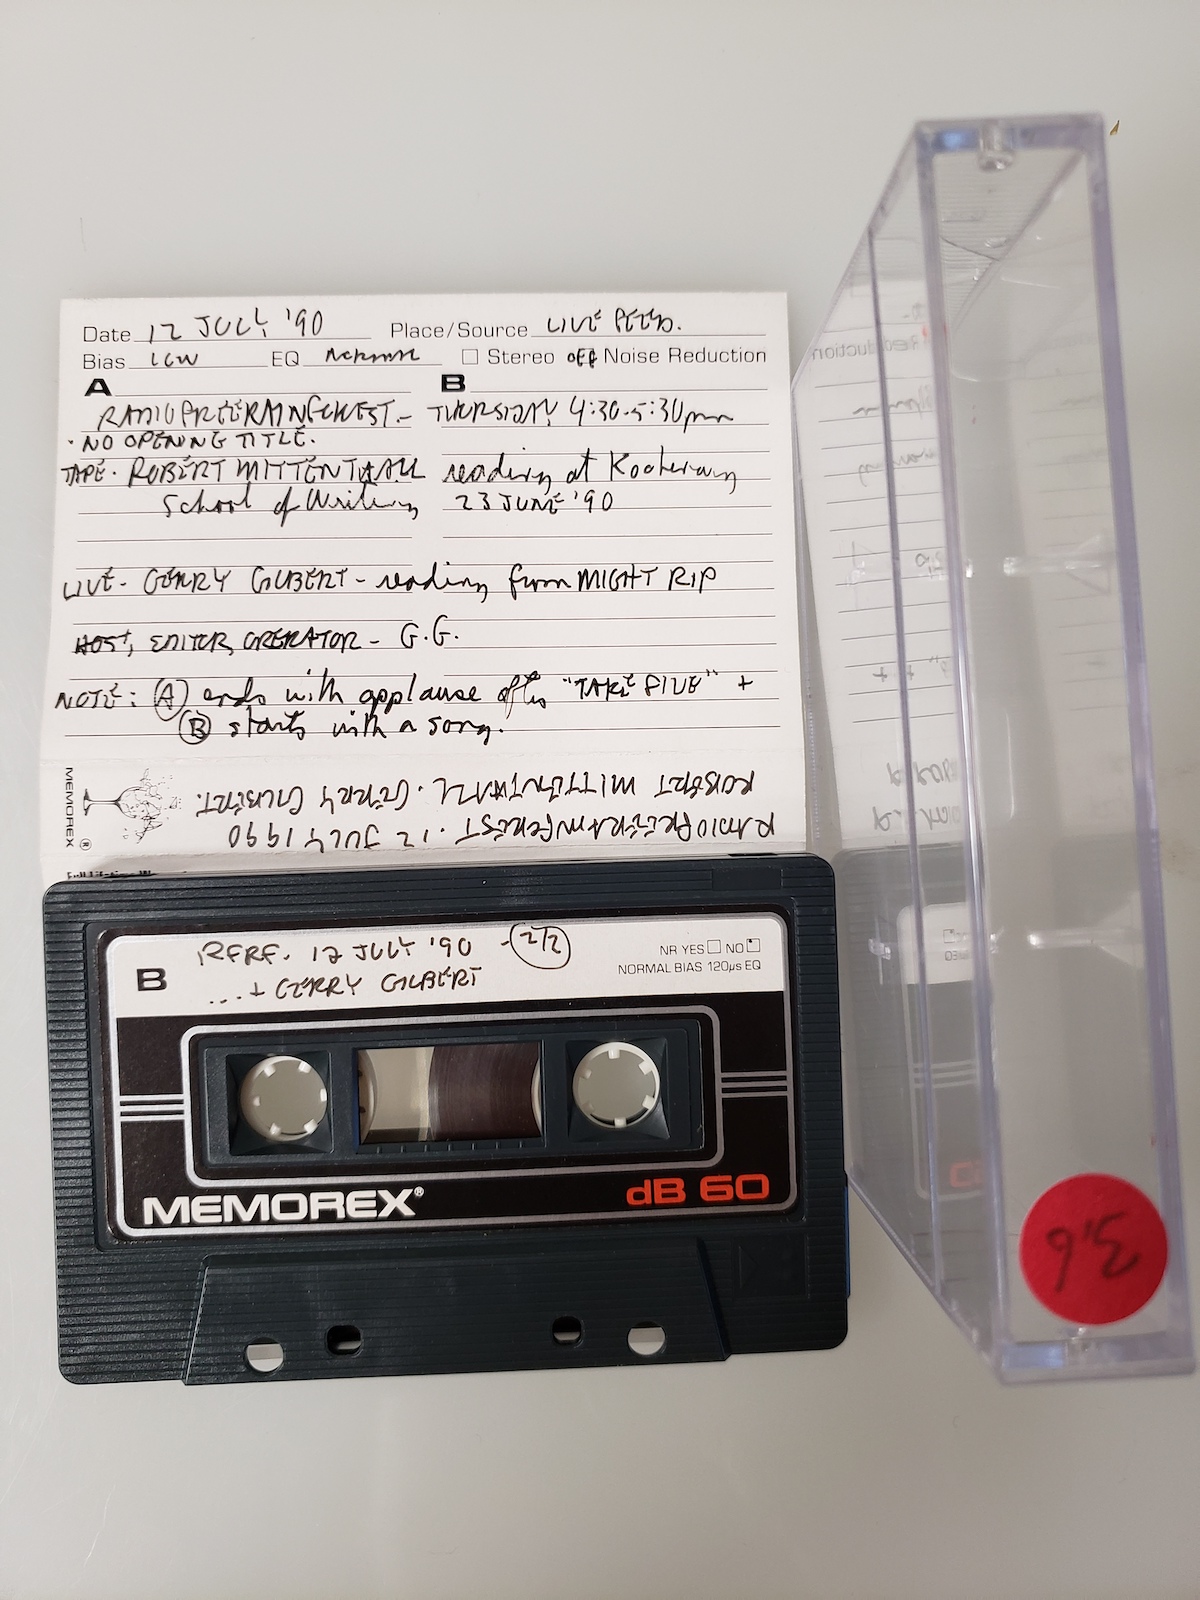 Date 12 JULY '90 Place/Source LIVE FEED.
Bias LOW EQ NORMAL Stereo OFF Noise Reduction
A B
RADIOFREERAINFOREST - THURSDAY 4:30-5:30pm
· NO OPENING TITLE.
TAPE · ROBERT MITTENTHALL reading at Kootenay
School of Writing 23 JUNE '90
LIVE - GERRY GILBERT - reading from MIGHT RIP
HOST, EDITOR, OPERATOR - G.G.
NOTE: (A) ends with applause after "TAKE FIVE" +
(B) starts with a song.
MEMOREX ®
RADIOFREERAINFOREST · 12 JULY 1990
ROBERT MITTENTHALL · GERRY GILBERT.
B
RFRF. 12 JULY '90 - 2/2
... + GERRY GILBERT
NR YES NO
NORMAL BIAS 120µs EQ
MEMOREX® dB 60
3.6